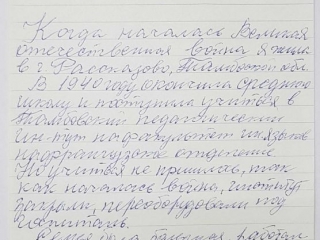 Когда началась Великая
отечественная война я жила
в г. Рассказово, Тамбовской обл.
В 1940 году окончила среднюю
школу и поступила учиться в
Тамбовский педагогический
ин-тут на факультет ин.языков
на французское отделение.
Но учиться не пришлось, так
как началась война, институт
закрыли, переоборудовали под
госпиталь.
была работал